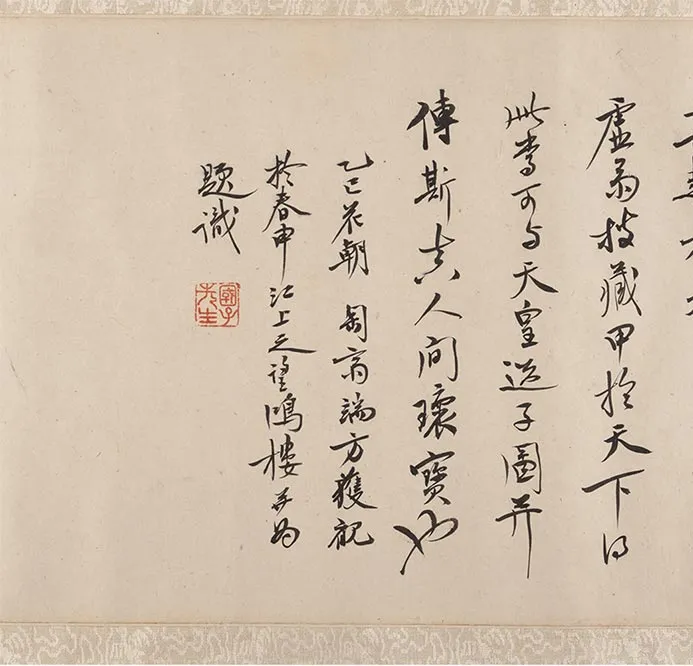 虛齋藏甲於天下得
此當可与天皇送子圖并
傳斯真人間瓌寶也
乙巳花朝 匋齋端方獲觀
於春申江上之望鴻樓并為
題識